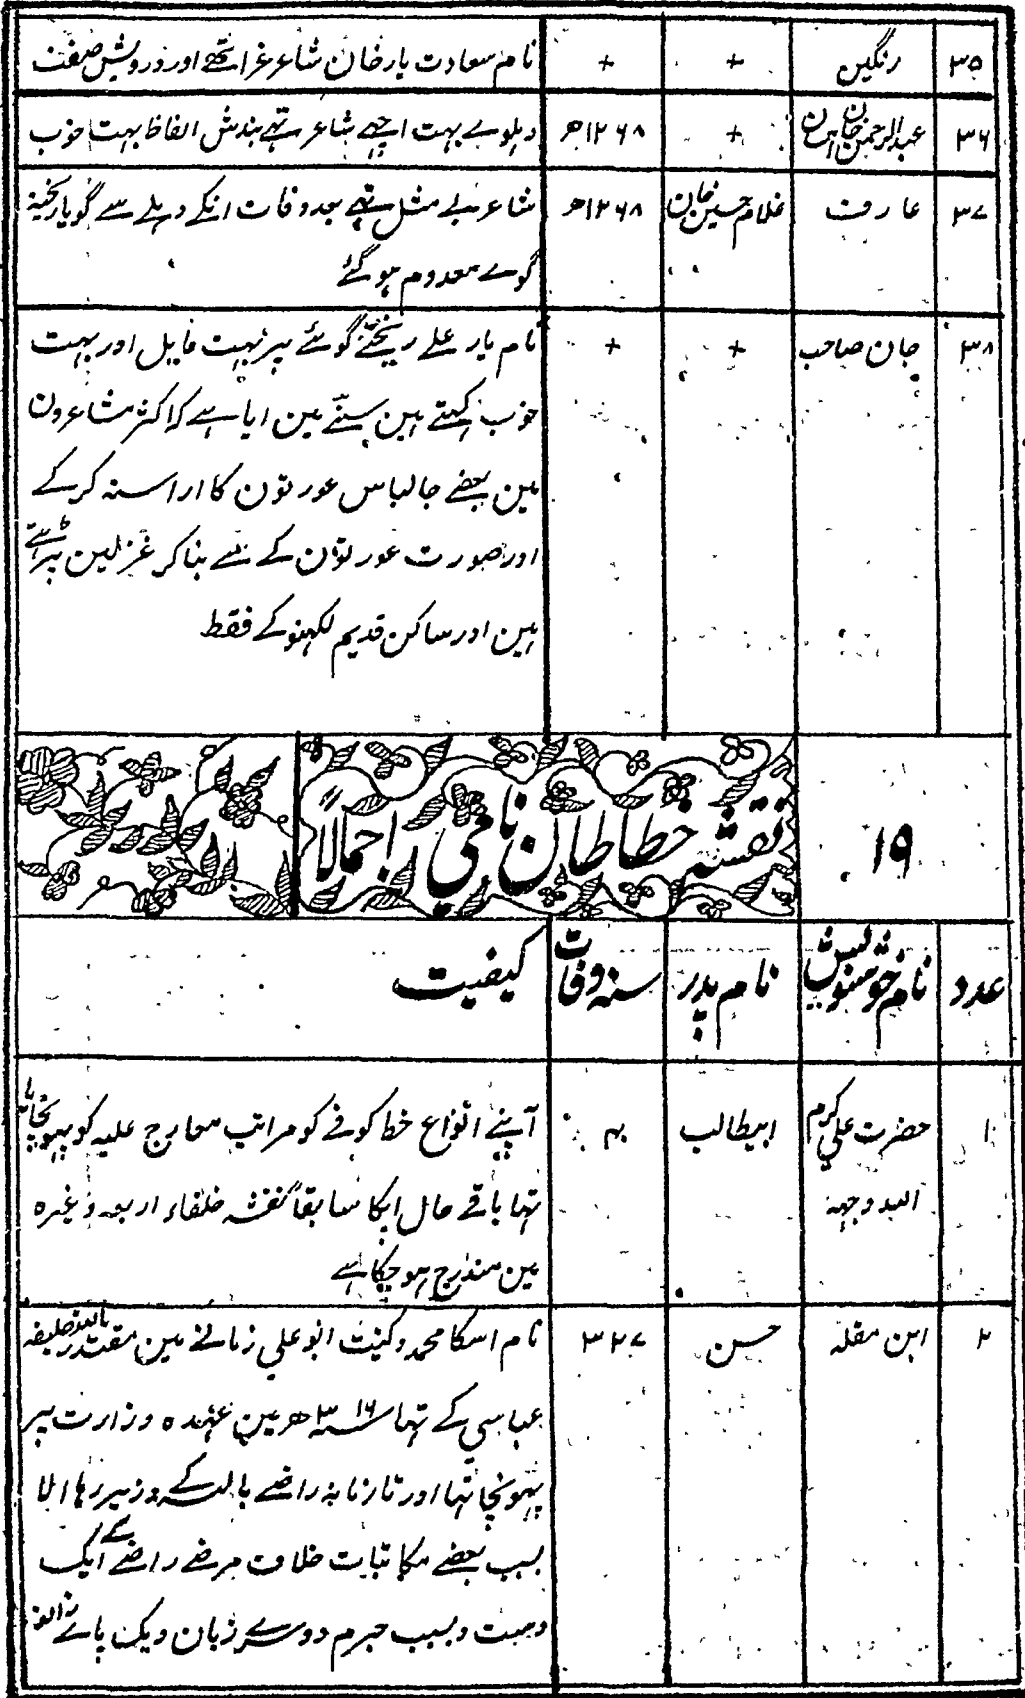 ۳۵ رنگین + + نام سعادت یار خان شاعر غرا تھے اور درویش صفت
۳۶ عبدالرحمن خان احسان + ۱۲۶۸ھ دہلوے بہت اچھے شاعر تھے بندش الفاظ بہت خوب
۳۷ عارف غلام حسین خان ۱۲۶۸ھ شاعر بے مثل تھے بعد وفات انکے دہلے سے گویا ریختہ
گوے معدوم ہو گئے
۳۸ جان صاحب + + نام یار علے ریختے گوئے پر بہت مایل اور بہت
خوب کہتے ہین سنّے مین ایا ہے کہ اکثر مشاعرون
مین بعضے جا لباس عورتون کا اراستہ کر کے
اور صورت عورتون کے سے بنا کر غزلین پڑہتے
ہین اور ساکن قدیم لکہنو کے فقط
۱۹ نقشہ خطاطان نامی اجمالاً
عدد نام خوشنویس نام پدر سنہ وفات کیفیت
۱ حضرت علی کرم ابیطالب ۴۰ آپنے انواع خط کوفے کو مراتب معارج علیہ کو پہونچایا
اللہ وجہہ تہا باقے حال اپکا سابقاً نقشہ خلفاء اربعہ وغیرہ
مین مندرج ہو چکا ہے
۲ ابن مقلہ حسن ۳۲۷ نام اسکا محمد وکنیت ابو علی زمانے مین مقتدر باللہ خلیفہ
عباسی کے تہا ۳۱۶ سنہ ھ مین عہدہ وزارت پر
پہونچا تہا اور تا زمانہ راضے باللہ کے وزیر رہا الا
بسبب بعضے مکاتبات خلاف مرضے راضے کے ایک
دست وبسبب جرم دوسرے زبان